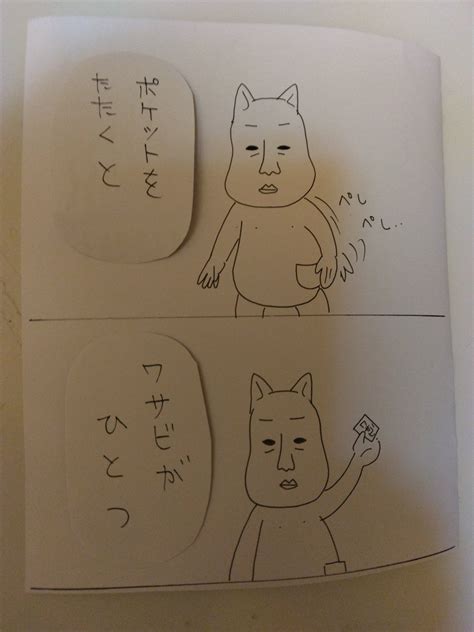 ポケットを
たたくと
ペし
ペし‥
ワサビが
ひとつ